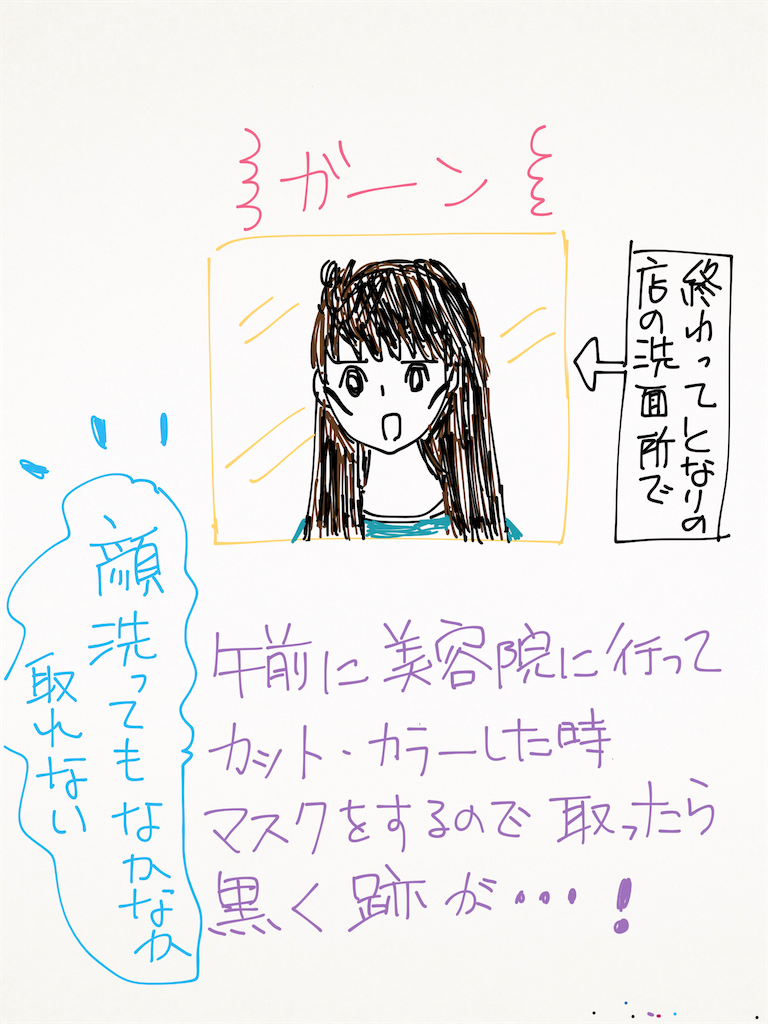 ガーン
終わってとなりの
店の洗面所で
午前に美容院に行って
カット・カラーした時
マスクをするので取ったら
黒く跡が…!
顔洗ってもなかなか
取れない